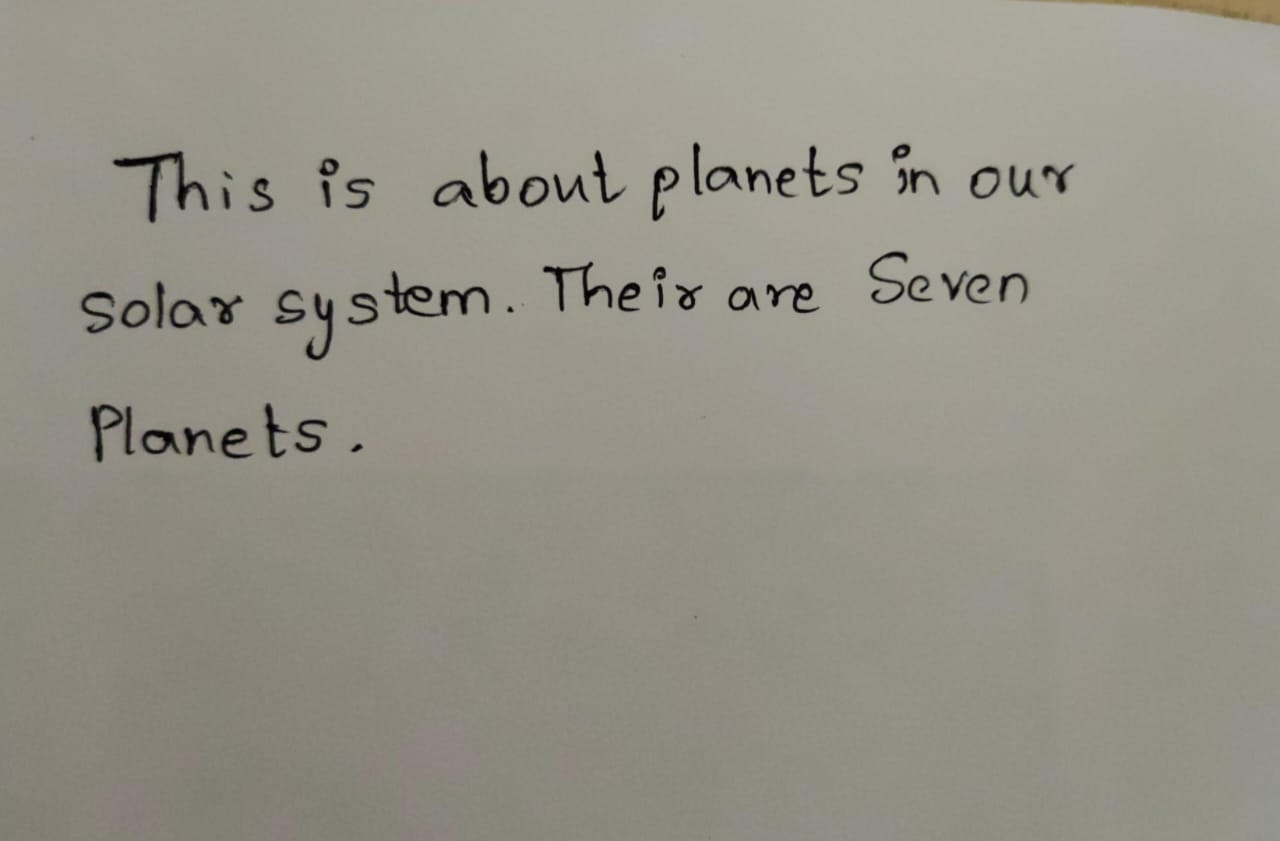 This is about planets in our
solar system. Their are Seven
Planets.